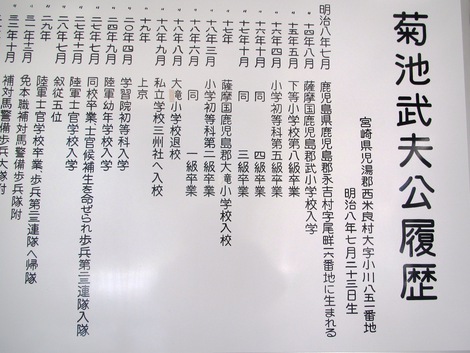 菊池武夫公履歴
宮崎県児湯郡西米良村大字小川八五一番地
明治八年七月二十三日生
明治八年七月 鹿児島県鹿児島郡永吉村字尾畔六番地に生まれる
〃十四年八月 薩摩国鹿児島郡武小学校入学
〃十五年五月 下等小学校第八級卒業
〃十六年 月 小学初等科第五級卒業
〃十六年四月 同 四級卒業
〃十七年十月 同 三級卒業
〃十七年 薩摩国鹿児島郡大滝小学校入校
〃十八年三月 小学初等科第二級卒業
〃十八年六月 同 一級卒業
〃十八年八月 大滝小学校退校
〃十八年九月 私立学校三州社へ入校
〃十九年 上京
〃二十年四月 学習院初等科入学
〃二四年九月 陸軍幼年学校入学
〃二七年十二月 同校卒業、士官候補生を命ぜられ歩兵第二三連隊入隊
〃二八年七月 陸軍士官学校入学
〃二九年 叙従五位
〃三十年十月 陸軍士官学校卒業 歩兵第二三連隊へ帰隊
〃三一年三月 免本職補対馬警備歩兵隊附
〃三二年十月 補対馬警備歩兵大隊附